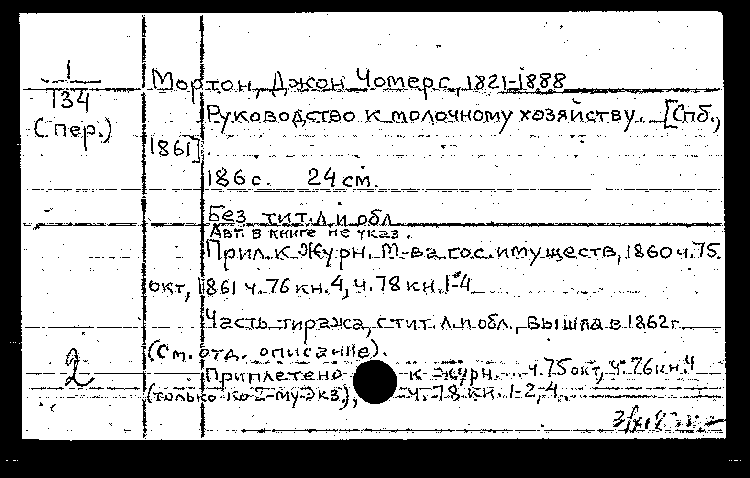 1
134
(пер.)
Мортон, Джон Чомерс, 1821-1888
Руководство к молочному хозяйству. [Спб.,
1861]
186 с. 24 см.
Без тит. л. и обл.
Авт. в книге не указ.
Прил. к Журн. М-ва гос. имуществ, 1860 ч. 75
окт, 1861 ч. 76 кн. 4, ч. 78 кн. 1-4
Часть тиража, с тит. л. и обл., вышла в 1862 г.
(См. отд. описание).
2
Приплетено к журн. ч. 75 окт, ч. 76 кн. 4
(только ко 2-му экз), ч. 78 кн. 1-2, 4.